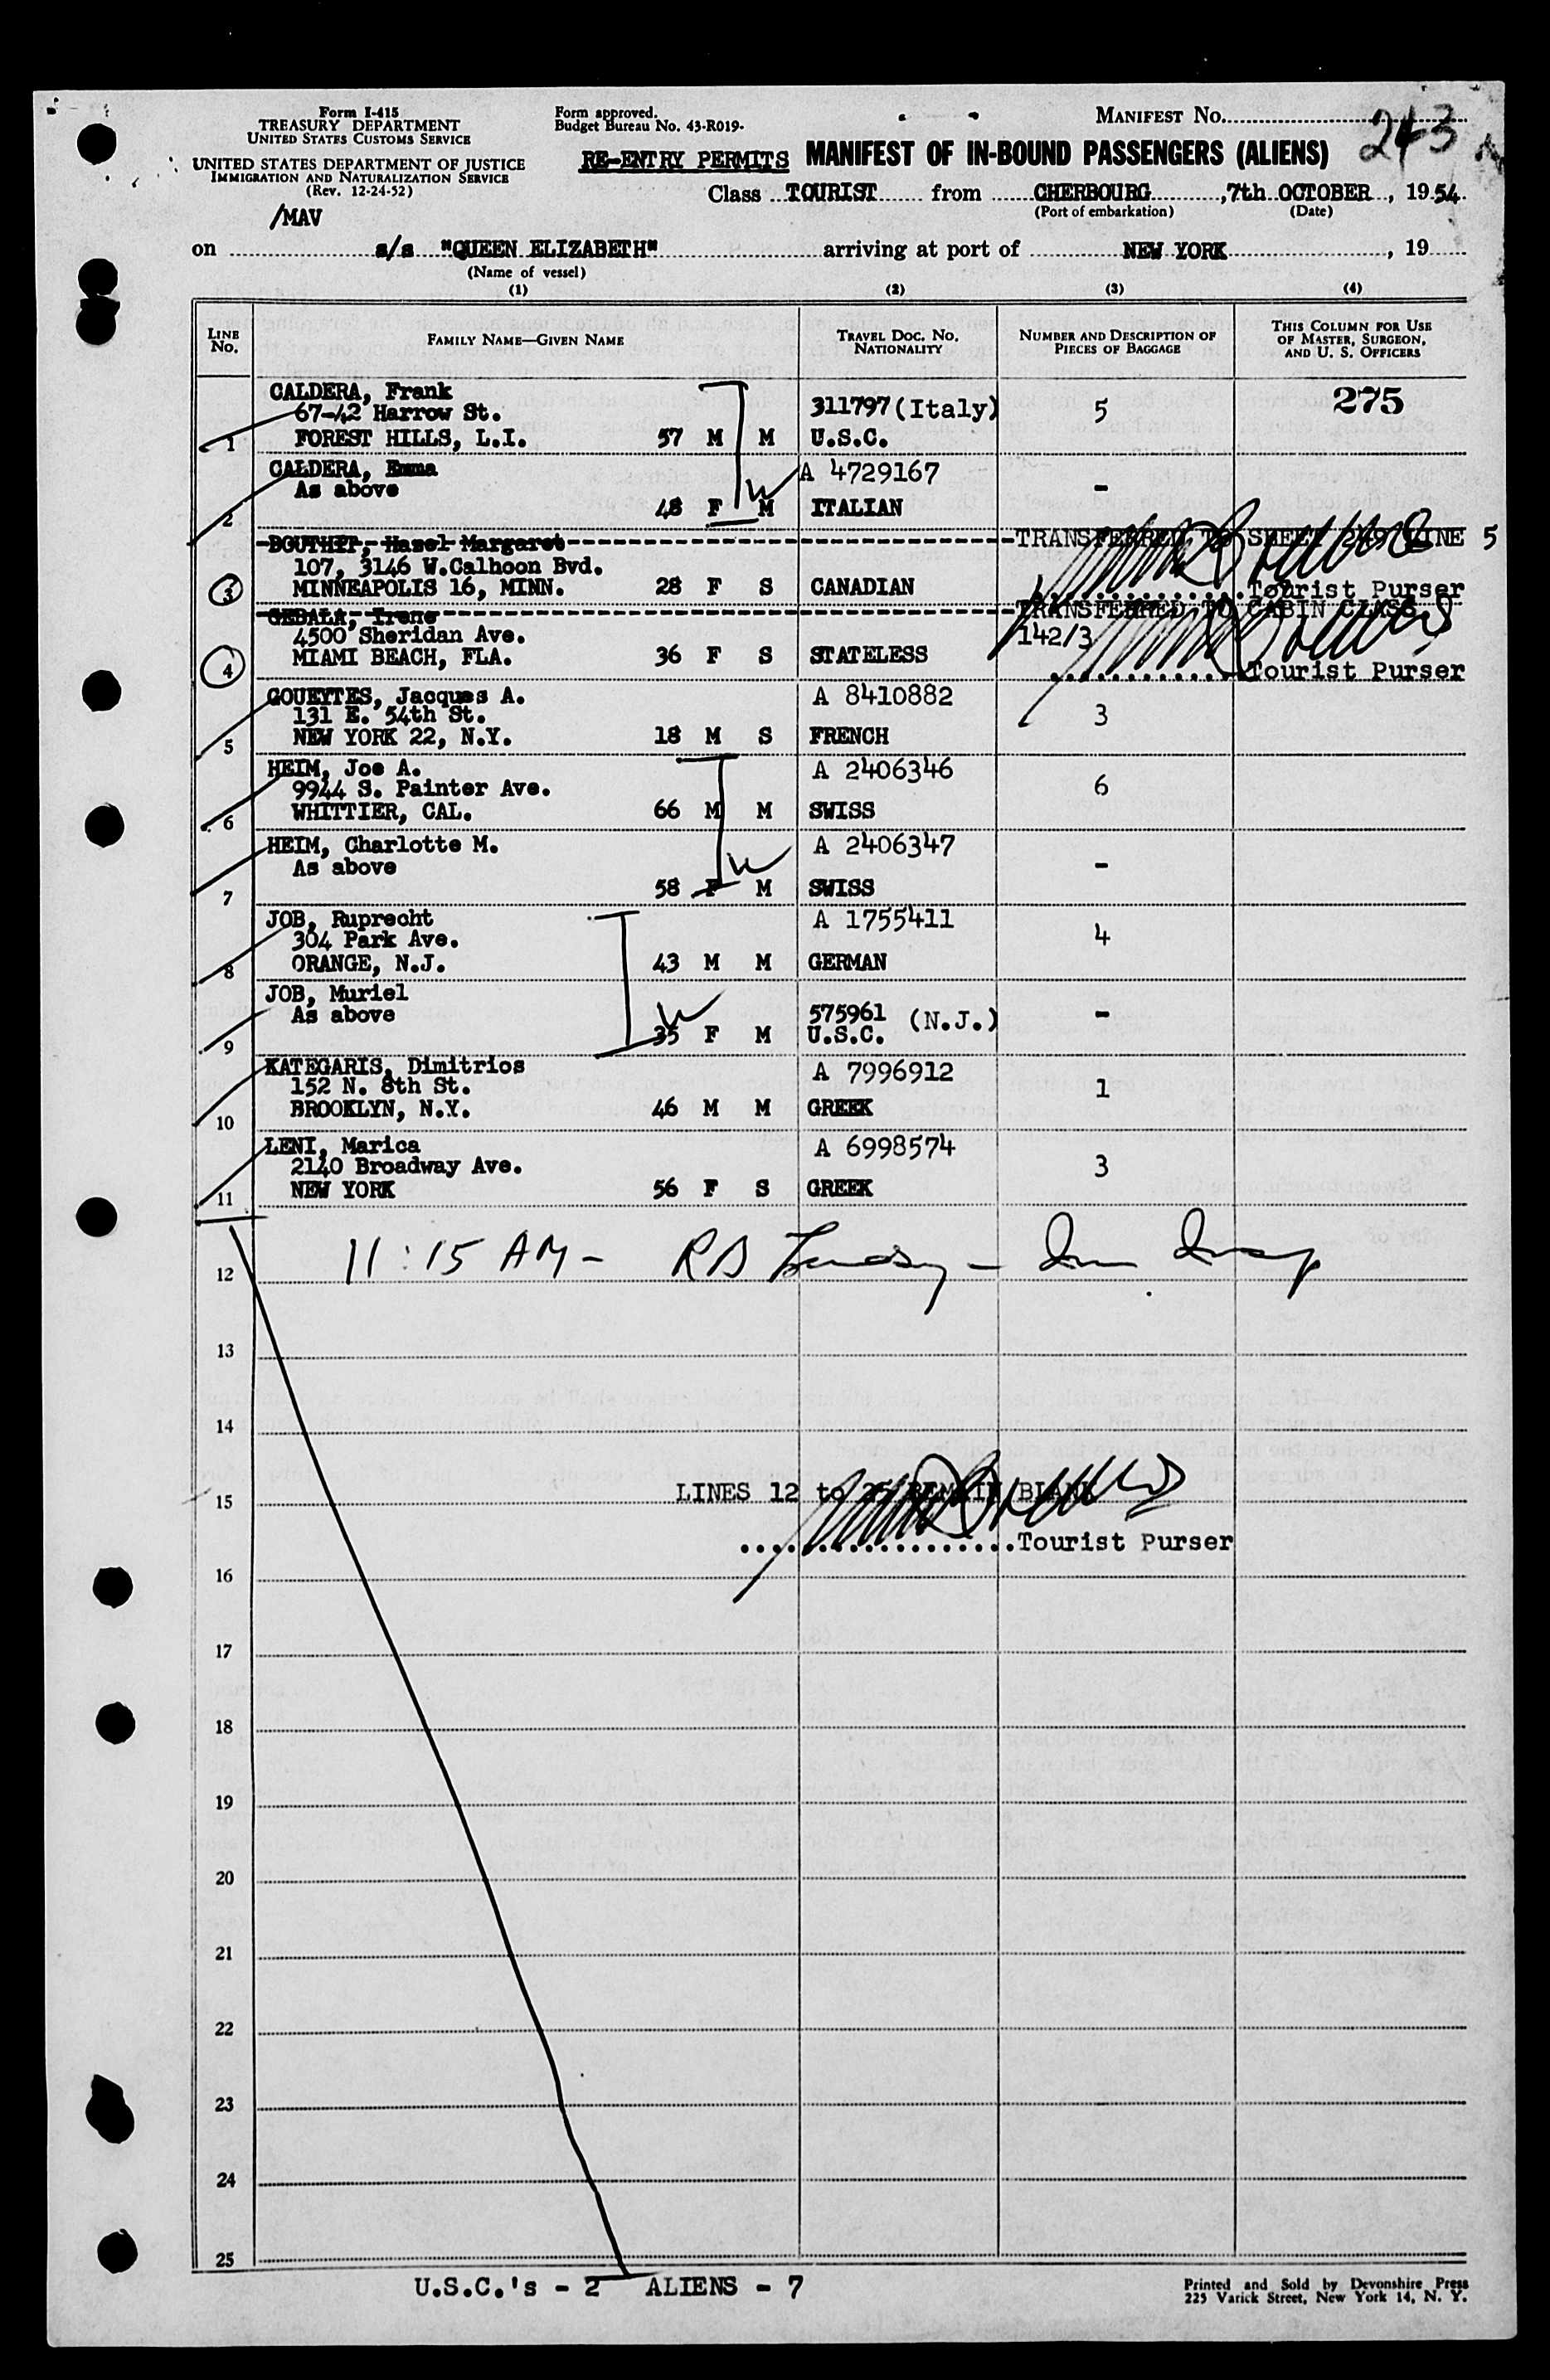 Form I-415
TREASURY DEPARTMENT
UNITED STATES CUSTOMS SERVICE
UNITED STATES DEPARTMENT OF JUSTICE
IMMIGRATION AND NATURALIZATION SERVICE
(Rev. 12-24-52)
/MAV
Form approved.
Budget Bureau No. 43-R019.
MANIFEST No. 243
RE-ENTRY PERMITS MANIFEST OF IN-BOUND PASSENGERS (ALIENS)
Class TOURIST from CHERBOURG, 7th OCTOBER, 1954
(Port of embarkation) (Date)
on s/s "QUEEN ELIZABETH" arriving at port of NEW YORK, 19
(Name of vessel)
(1) (2) (3) (4)
LINE No. FAMILY NAME—GIVEN NAME TRAVEL DOC. No. NATIONALITY NUMBER AND DESCRIPTION OF PIECES OF BAGGAGE THIS COLUMN FOR USE OF MASTER, SURGEON, AND U. S. OFFICERS
CALDERA, Frank 275
67-42 Harrow St. 311797 (Italy) 5
1 FOREST HILLS, L.I. 57 M M U.S.C.
CALDERA, Emma A 4729167
As above -
2 48 F M ITALIAN
BOUTHET, Hazel Margaret TRANSFERRED TO SHEET 249 LINE 5
107, 3146 W.Calhoon Bvd.
3 MINNEAPOLIS 16, MINN. 28 F S CANADIAN Tourist Purser
GEBALA, Irene TRANSFERRED TO CABIN CLASS
4500 Sheridan Ave. 142/3
4 MIAMI BEACH, FLA. 36 F S STATELESS Tourist Purser
GOUEYTES, Jacques A. A 8410882
131 E. 54th St. 3
5 NEW YORK 22, N.Y. 18 M S FRENCH
HEIM, Joe A. A 2406346
9944 S. Painter Ave. 6
6 WHITTIER, CAL. 66 M M SWISS
HEIM, Charlotte M. A 2406347
As above -
7 58 F M SWISS
JOB, Ruprecht A 1755411
304 Park Ave. 4
8 ORANGE, N.J. 43 M M GERMAN
JOB, Muriel
As above 575961 (N.J.) -
9 35 F M U.S.C.
KATEGARIS, Dimitrios A 7996912
152 N. 8th St. 1
10 BROOKLYN, N.Y. 46 M M GREEK
LENI, Marica A 6998574
2140 Broadway Ave. 3
11 NEW YORK 56 F S GREEK
12 11:15 AM -
13
14
15 LINES 12 to 25 REMAIN BLANK
Tourist Purser
16
17
18
19
20
21
22
23
24
25
U.S.C.'s - 2 ALIENS - 7
Printed and Sold by Devonshire Press
225 Varick Street, New York 14, N. Y.